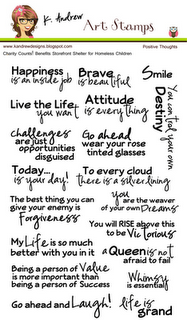 K. Andrew
Art Stamps
www.kandrewdesigns.blogspot.com
Positive Thoughts
Charity Counts! Benefits Storefront Shelter for Homeless Children
Happiness
is an inside job
Brave
is beautiful
Smile
Live the Life
you want
Attitude
is everything
You control your own
Destiny
challenges
are just
opportunities
disguised
Go ahead
wear your rose
tinted glasses
Today...
is your day!
To every cloud
there is a silver lining
The best thing you can
give your enemy is
Forgiveness
you are the weaver
of your own Dreams
You will RISE above this
to be Victorious
My Life is so much
better with you in it
a Queen is not
afraid to fail
Being a person of Value
is more important than
being a person of Success
Whimsy
is essential
Go ahead and Laugh!
life is
grand